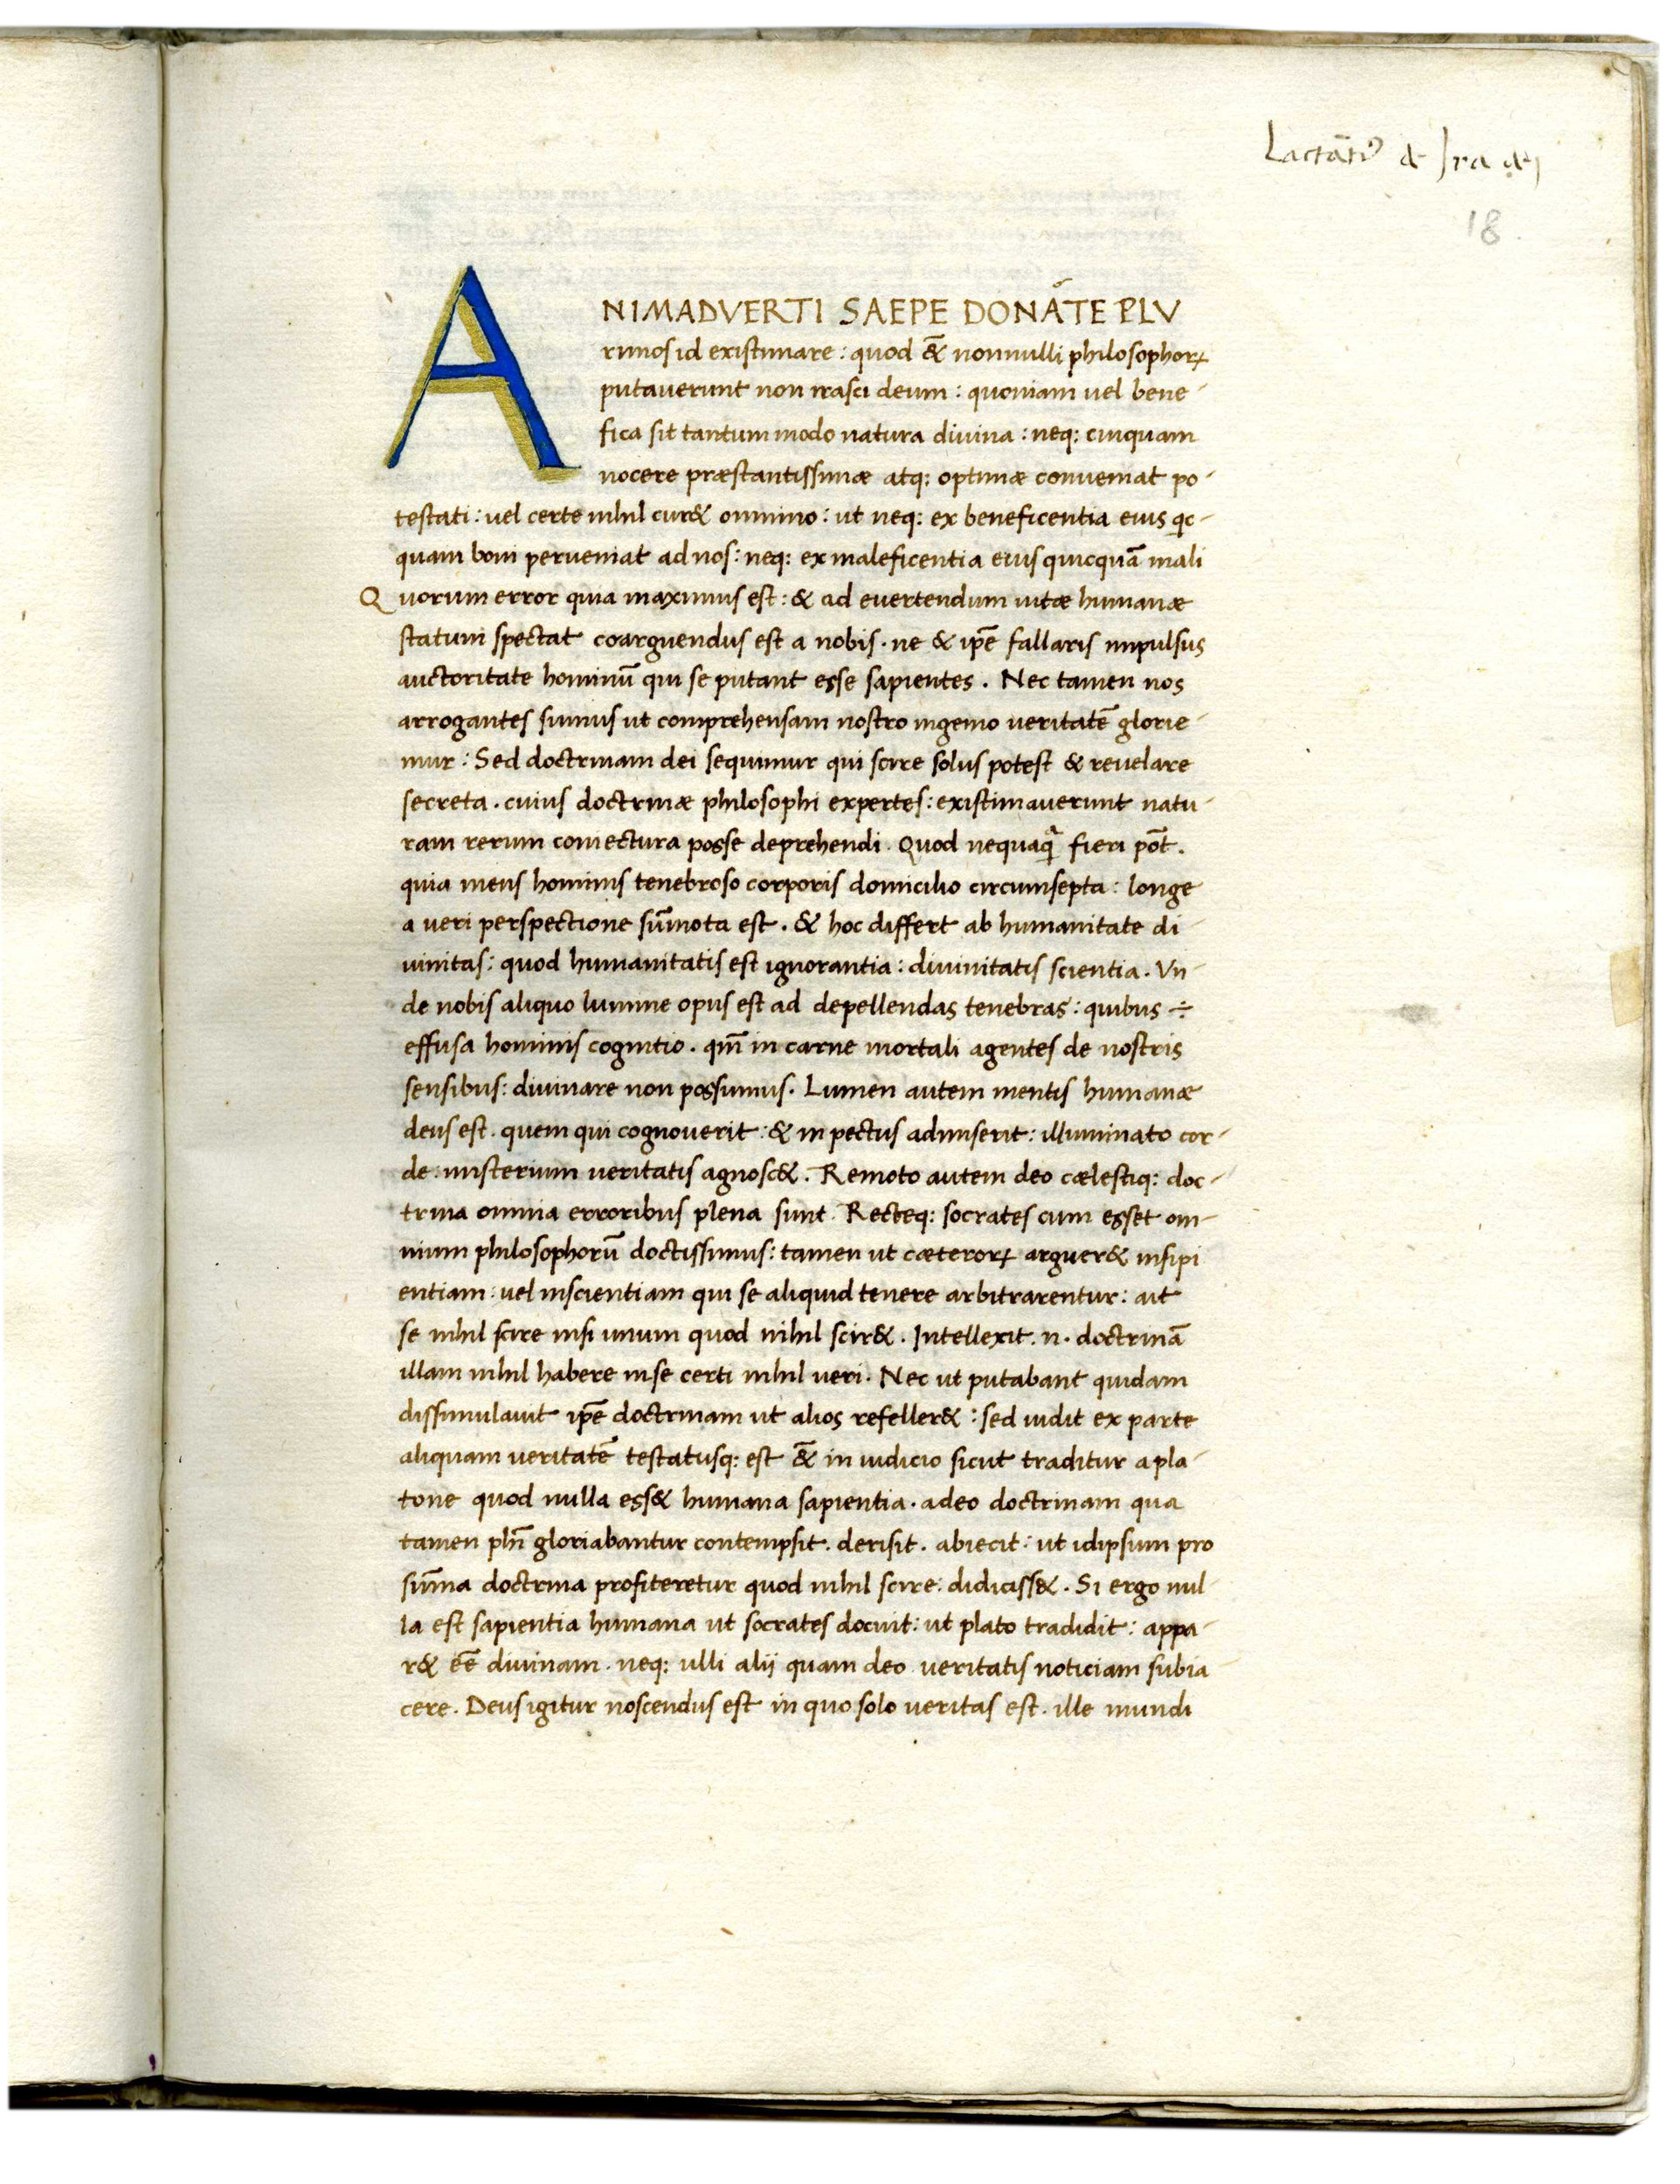 Lactāti⁹ de Ira dei
18
ANIMADVERTI SAEPE DONATE PLV
rimos id existimare : quod &̄ nonnulli philosophorꝝ
putauerunt non irasci deum : quoniam uel bene-
fica sit tantum modo natura diuina : neq; cuiquam
nocere præstantissimæ atq; optimæ conueniat po-
testati : uel certe nihil cur& omnino : ut neq; ex beneficentia eius qc-
quam boni perueniat ad nos : neq; ex maleficentia eius quicquā mali
Quorum error quia maximus est : & ad euertendum uitæ humanæ
statum spectat coarguendus est a nobis . ne & ip̄e fallaris impulsus
auctoritate hominū qui se putant esse sapientes . Nec tamen nos
arrogantes sumus ut comprehensam nostro ingenio ueritatē glorie-
mur : Sed doctrinam dei sequimur qui scire solus potest & reuelare
secreta . cuius doctrinæ philosophi expertes : existimauerunt natu-
ram rerum coniectura posse deprehendi . Quod nequaq̄ fieri pōt .
quia mens hominis tenebroso corporis domicilio circumsepta : longe
a ueri perspectione sūmota est . & hoc differt ab humanitate di
uinitas : quod humanitatis est ignorantia : diuinitatis scientia . Vn-
de nobis aliquo lumine opus est ad depellendas tenebras : quibus ÷
effusa hominis cognitio . qm̄ in carne mortali agentes de nostris
sensibus : diuinare non possumus . Lumen autem mentis humanæ
deus est . quem qui cognouerit : & in pectus admiserit : illuminato cor-
de : misterium ueritatis agnosc& . Remoto autem deo cælestiq; doc-
trina omnia erroribus plena sunt . Recteq; socrates cum esset om-
nium philosophorū doctissimus : tamen ut cæterorꝝ arguer& insipi
entiam : uel inscientiam qui se aliquid tenere arbitrarentur : ait
se nihil scire nisi unum quod nihil scir& . Intellexit . n . doctrinā
illam nihil habere in se certi nihil ueri . Nec ut putabant quidam
dissimulauit ip̄e doctrinam ut alios refeller& : sed uidit ex parte
aliquam ueritatē testatusq; est &̄ in iudicio sicut traditur a pla-
tone quod nulla ess& humana sapientia . adeo doctrinam qua
tamen ph̄i gloriabantur contempsit . derisit . abiecit : ut idipsum pro
sūma doctrina profiteretur quod nihil scire : didiciss& . Si ergo nul-
la est sapientia humana ut socrates docuit : ut plato tradidit : appa-
r& eē diuinam . neq; ulli alij quam deo ueritatis noticiam subia-
cere . Deus igitur noscendus est in quo solo ueritas est . ille mundi